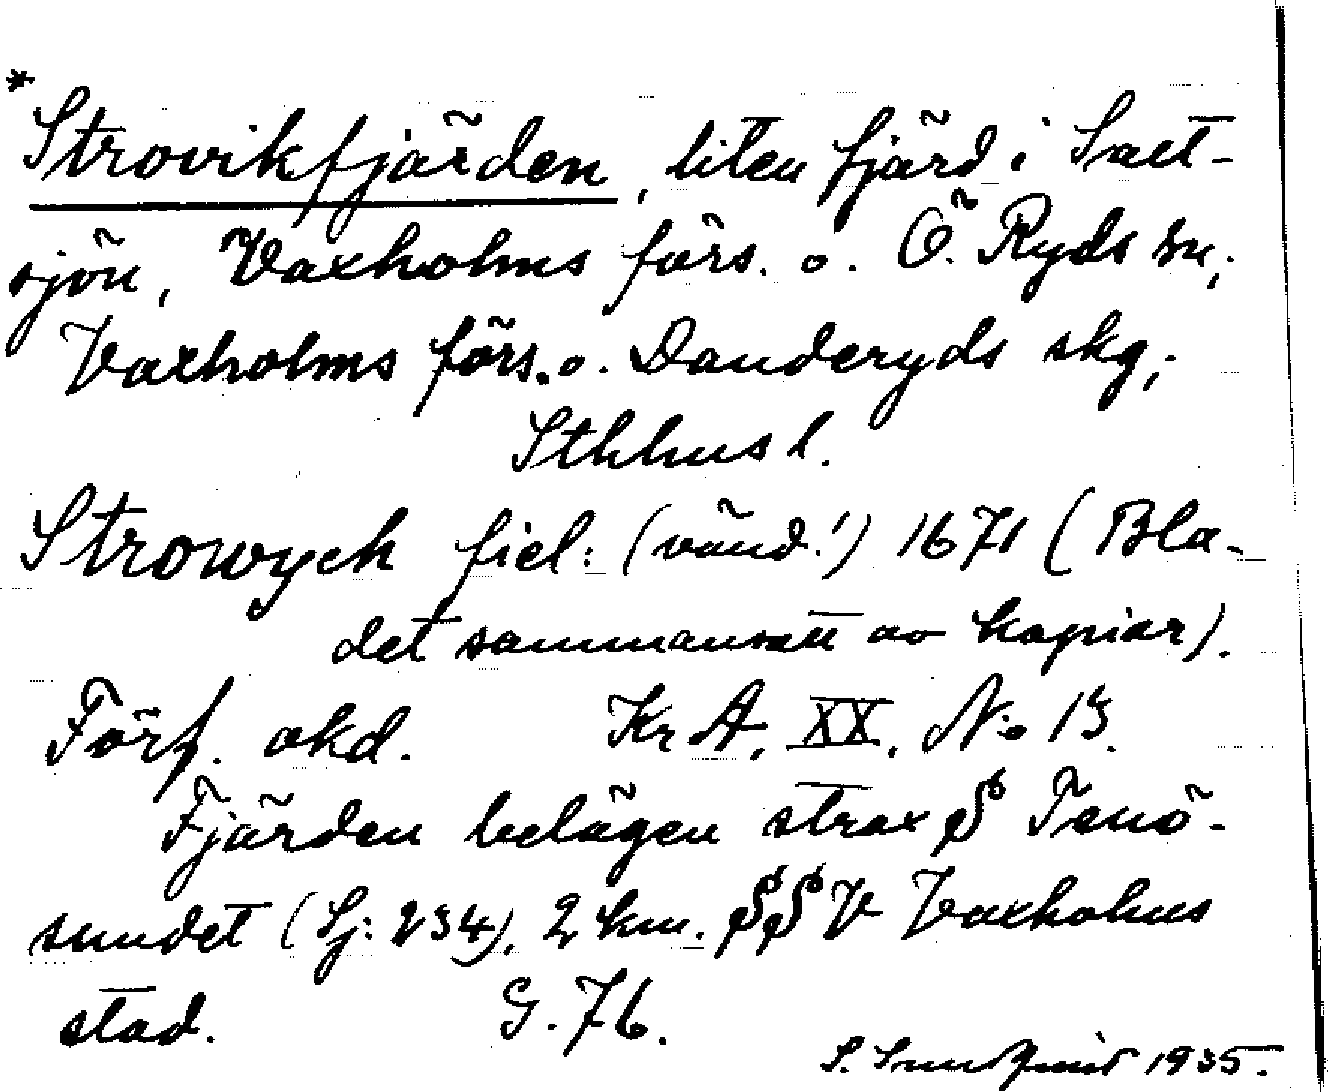 *Strovikfjärden, liten fjärd i Salt-
sjön, Vaxholms förs. o. Ö. Ryds sn,
Vaxholms förs. o. Danderyds skg,
Sthlms l.
Strowych fiel: (vänd!) 1671 (Bla-
det sammansatt av kopior).
Förf. okd. KrA, XX, No 13.
Fjärden belägen strax S Tenö-
sundet (Sj: 234), 2 km. SSV Vaxholms
stad. G. 76.
S. 1935.